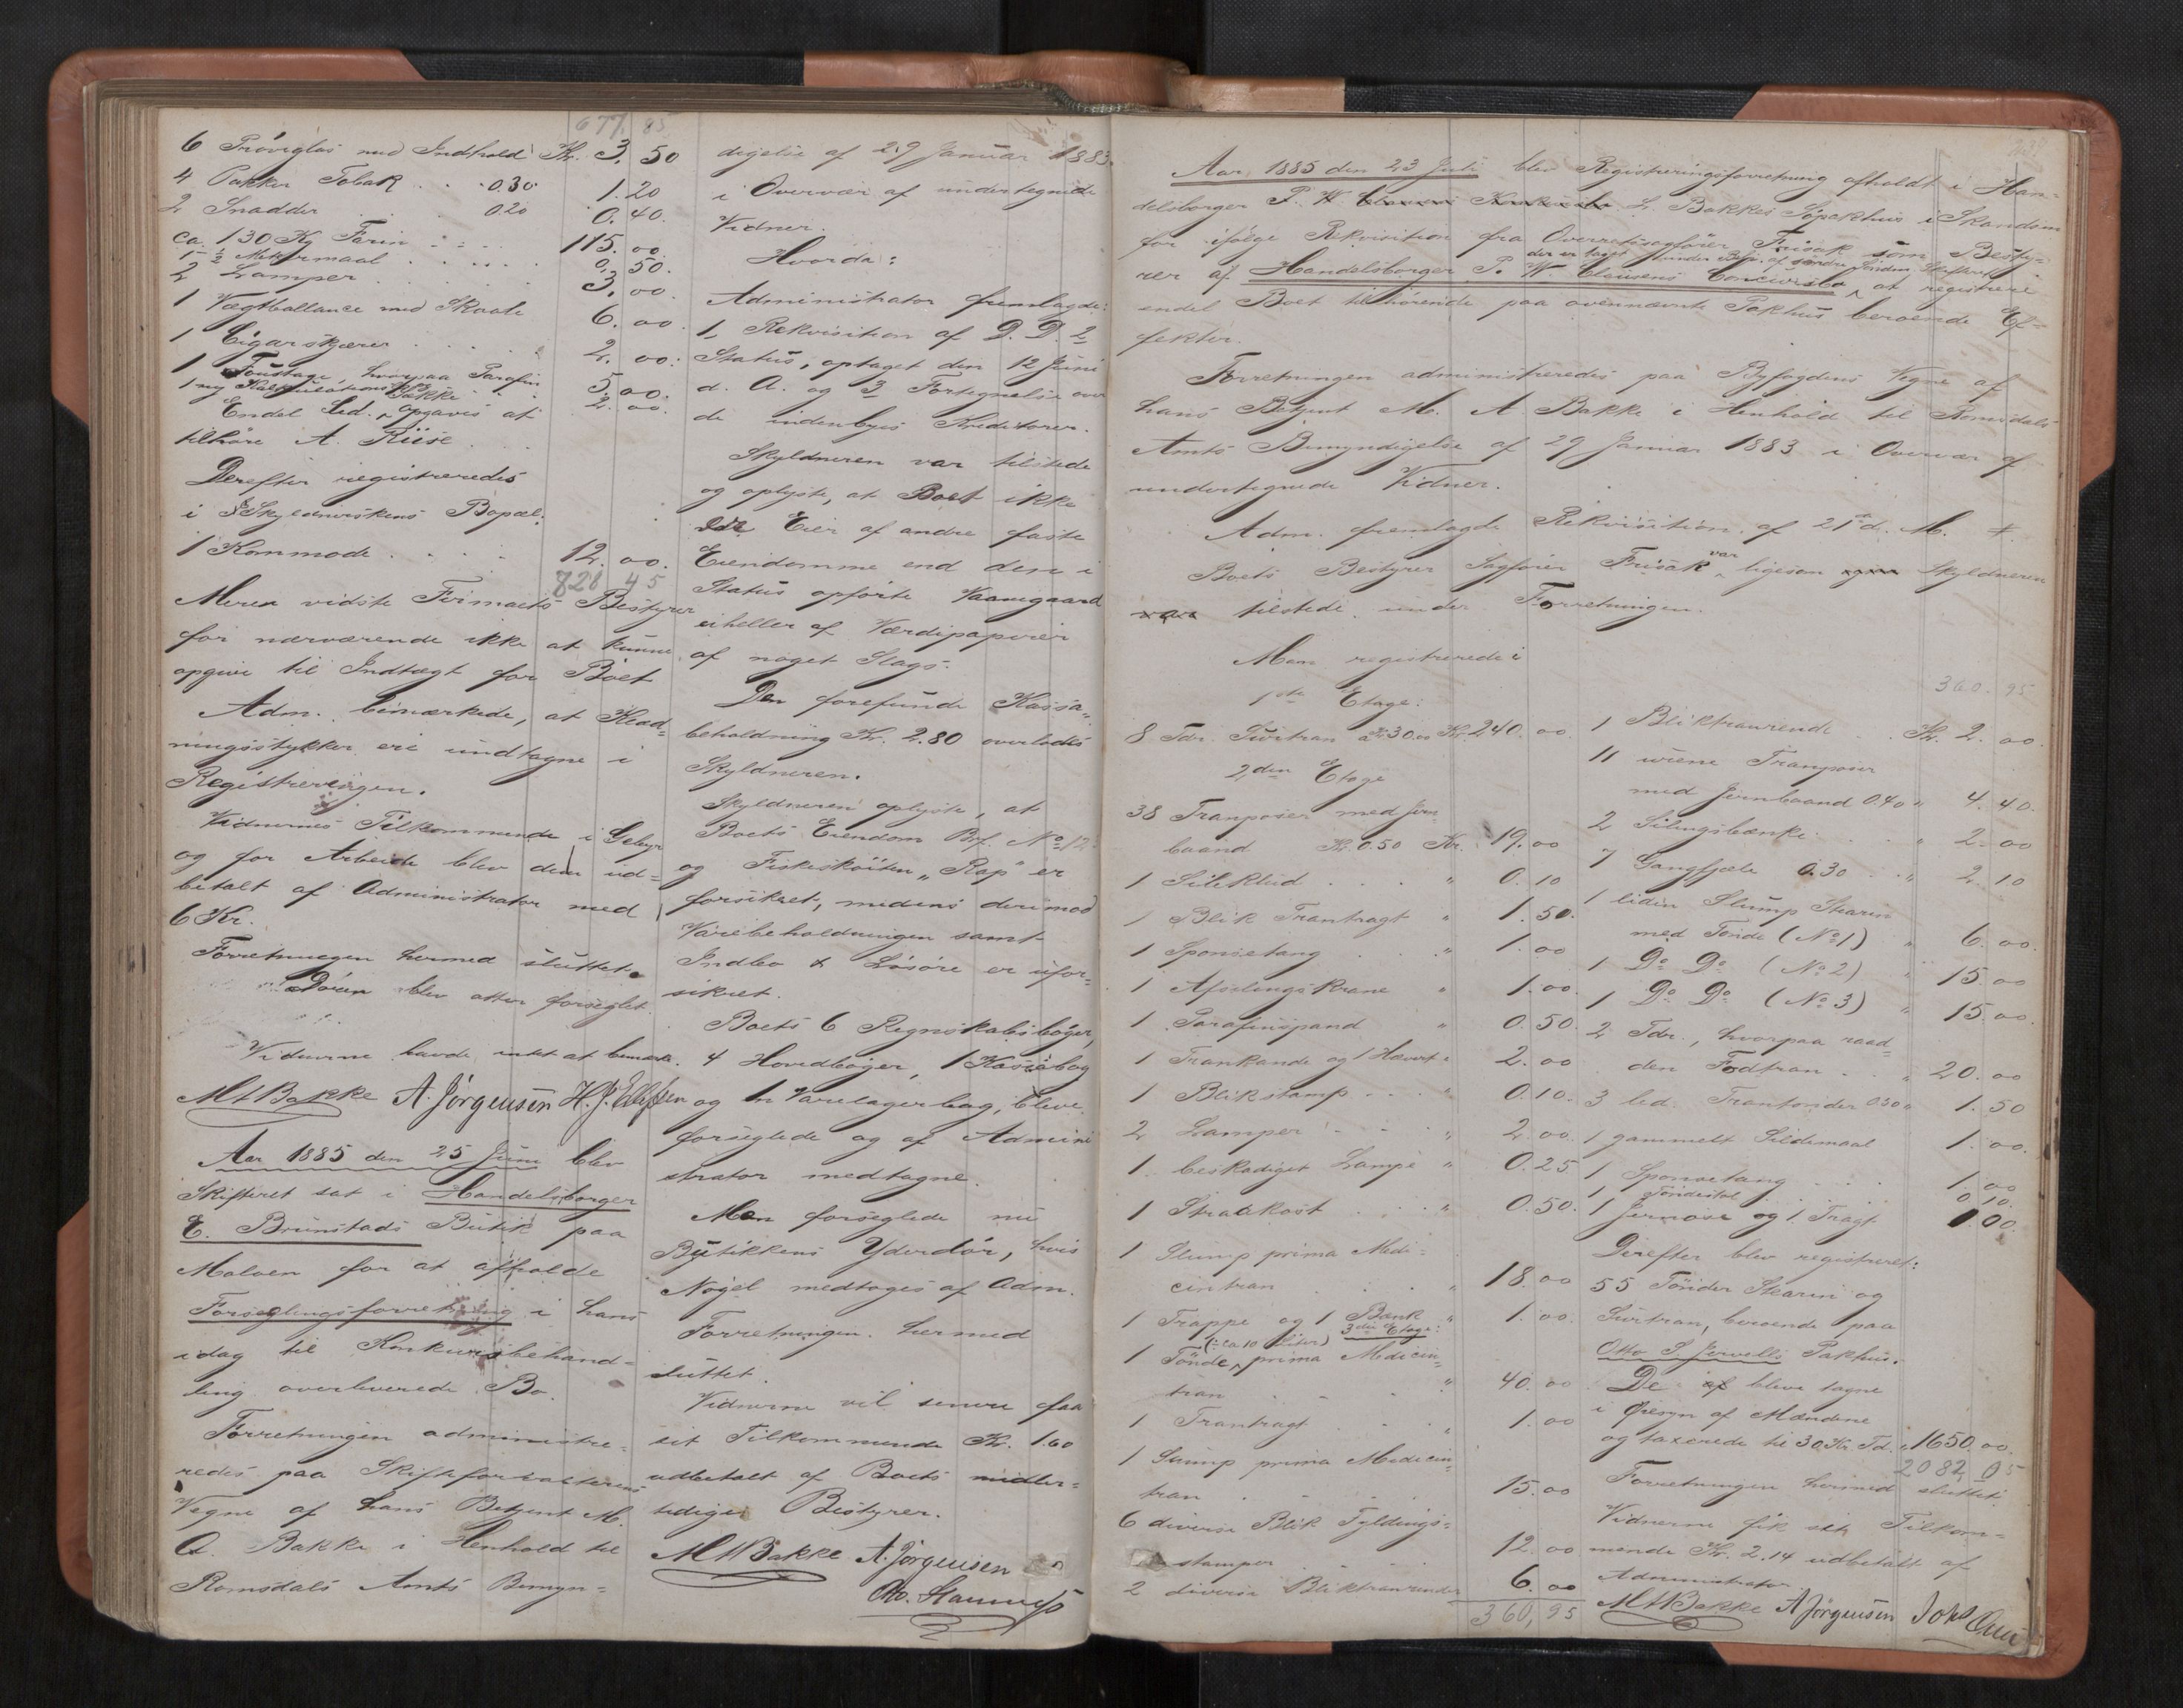 677. 85
6 Prøveglas med Indhold Kr. 3. 50
4 Pakker Tobak . . 0.30 1. 20
2 Snadder . . . 0.20 0. 40.
ca. 130 Kg Farin . . . 115. 00
1 - ½ Mekermaal . . . . 0. 50.
2 Lamper . . . . 3. 00.
1 Vægtballance med Skaale 6. 00.
1 Cigarskjærer . . . 2. 00.
1 Foustage, hvorpaa Parafin 5. 00.
1 ny Kalkulations 2. 00.
Endel Led. Sække opgaves at
tilhøre A. Riise.
Derefter registreredes
i Skyldnerskens Bopæl:
1 Kommode . . . . 12. 00.
828 45
Mere vidste Firmaets Bestyrer
for nærværende ikke at kunne
opgive til Indtægt for Boet
Adm. bemærkede, at Klæd=
ningsstykker ere undtagne i
Registreringen.
Vidnernes Tilkommende i Gebyr
og for Arbeide blev dem ud=
betalt af Administrator med
6 Kr.
Forretningen hermed sluttet.
Døren blev atter forseglet.
Vidnerne havde intet at bemærke.
M A Bakke A. Jørgensen H. J. Ellefsen
Aar 1885 den 25 Juni blev
Skifteret sat i Handelsborger
E. Brunstads Butik paa
Moloen for at afholde
Forseglingsforretning i hans
idag til Konkursbehand=
ling overleverede Bo.
Forretningen administre=
redes paa Skifteforvalterens
Vegne af hans Betjent M.
A. Bakke i Henhold til
Romsdals Amts Bemyn=
digelse af 29 Januar 1883
i Overvær af undertegnede
Vidner.
Hvorda:
Administrator fremlagde:
1, Rekvisition af D. D. 2
Status, optaget den 12 Juni
d. A. og 3 Fortegnelse over
de indenbyes Kreditorer.
Skyldneren var tilstede
og oplyste, at Boet ikke
Eier af andre faste
Eiendomme end den i
Status opførte Vaanegaard
eiheller af Værdipapirer
af noget Slags.
Den forefunde Kassa=
beholdning Kr. 2.80 overlodes
Skyldneren.
Skyldneren oplyste, at
Boets Eiendom Brf. No 12
og Fiskeskøiten "Rap" er
forsikret, medens derimod
Varebeholdningen samt
Indbo & Løsøre er ufor=
sikret.
Boets 6 Regnskabsbøger,
4 Hovedbøger, 1 Kassabog
og 1 Varelagerbog, bleve
forseglede og af Admini
strator medtagne.
Man forseglede nu
Butikkens Yderdør, hvis
Nøgel medtoges af Adm.
Forretningen hermed
sluttet.
Vidnerne vil senere faa
sit Tilkommende Kr. 1.60
udbetalt af Boets midler=
tidige Bestyrer.
M A Bakke A. Jørgensen
Aar 1885 den 23 Juli blev Registreringsforretning afholdt i Han=
delsborger P. W. L. Bakkes Søpakhus i Skandsen
for ifølge Rekvisition fra Overretssagfører Frisak som Besty=
der er taget under Beh. af Søndre Søndm. Skifteret
rer af Handelsborger P. W. Clausens Concursbo, at registrere
endel Boet tilhørende paa ovennævnte Pakhus beroende Ef=
fekter.
Forretningen administreredes paa Byfogdens Vegne af
hans Betjent M. A. Bakke i Henhold til Romsdals
Amts Bemyndigelse af 29 Januar 1883 i Overvær af
undertegnede Vidner.
Adm. fremlagde Rekvisition af 21de d. M. #.
Boets Bestyrer Sagfører Frisak var ligesom Skyldneren
var tilstede under Forretningen.
Man registrerede i
1ste Etage:
8 Tdr. Surtran a Kr. 30.00 Kr. 240. 00
2den Etage
38 Tranposer med Jern
baand Kr. 0.50 Kr. 19. 00
1 Sileklud . . . " 0. 10
1 Blik Trantragt " 1. 50.
1 Sponsetang . . " 1. 00
1 Aftælingskrane " 1. 00.
1 Parafinspand " 0. 50.
1 Trankande og 1 Hævert " 2. 00
1 Blikstamp . . . " 0. 10.
2 Lamper . . . " 2. 00.
1 beskadiget Lampe " 0. 25
1 Straakost . . . " 0. 50.
1 Slump prima Medi=
cintran . . . " 18. 00
1 Trappe og 1 Bænk " 1. 00.
3die Etage:
(: ca 10 Liter)
1 Tønde, prima Medicin=
tran . . . " 40. 00
1 Trantragt . . . 1. 00
1 Slump prima Medicin
tran . . . . 15. 00
6 diverse Blik Fyldings=
stamper . . . . 12. 00
2 diverse Bliktranrender 6. 00
360, 95
360. 95
1 Bliktranrende . . Kr. 2. 00.
11 urene Tranposer
med Jernbaand 0.40 " 4. 40.
2 Silingsbænke . . " 2. 00
7 Gangfjæle 0.30 . . " 2. 10
1 liden Slump Stearin
med Tønde (No 1) " 6. 00.
1 Do Do (No 2) " 15. 00
1 Do Do (No 3) " 15. 00.
2 Tdr., hvorpaa raad=
den Fodtran . . " 20. 00
3 led. Trantønder 0.50 " 1. 50
1 gammelt Sildemaal 1. 00.
1 Sponsetang . . . . 1. 00
1 Tøndestol . . . . 0. 10.
1 Jernose og 1 Tragt 1. 00.
Derefter blev registreret:
55 Tønder Stearin og
Surtran, beroende paa
Otto S. Jervells Pakhus.
De bleve tagne
i Øiesyn af Mændene
og taxerede til 30 Kr. Td. " 1650. 00.
2082, 05
Forretningen hermed sluttet.
Vidnerne fik sit Tilkom=
mende Kr. 2.14 udbetalt af
Administrator.
M A Bakke A Jørgensen